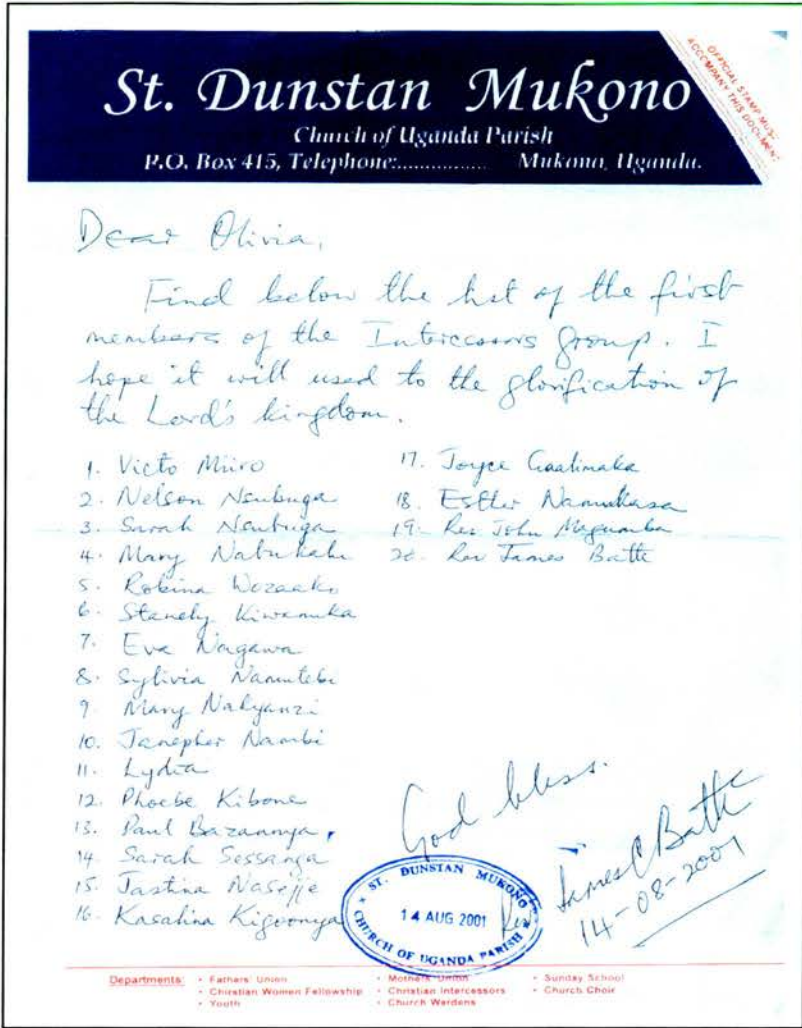 St. Dunstan Mukono
Church of Uganda Parish
P.O. Box 415, Telephone:................ Mukono, Uganda.
OFFICIAL STAMP MUST
ACCOMPANY THIS DOCUMENT
Dear Olivia,
Find below the list of the first
members of the Intercessors group. I
hope it will used to the glorification of
the Lord's kingdom.
1. Victo Miiro
2. Nelson Nsubuga
3. Sarah Nsubuga
4. Mary Nabukalu
5. Robina Wozaako
6. Stanely Kiwanuka
7. Eva Nagawa
8. Sylivia Namutebi
9. Mary Nalyanzi
10. Janepher Nambi
11. Lydia
12. Phoebe Kibone
13. Paul Bazannya
14. Sarah Sessanga
15. Jastina Nasejje
16. Kasalina Kigoonya
17. Joyce Gaalimaka
18. Esther Namukasa
19. Rev John Magumba
20. Rev James Batte
God bless.
Rev James C Batte
14-08-2001
ST. DUNSTAN MUKONO
14 AUG 2001
CHURCH OF UGANDA PARISH
Departments: • Fathers' Union • Mothers' Union • Sunday School
• Christian Women Fellowship • Christian Intercessors • Church Choir
• Youth • Church Wardens